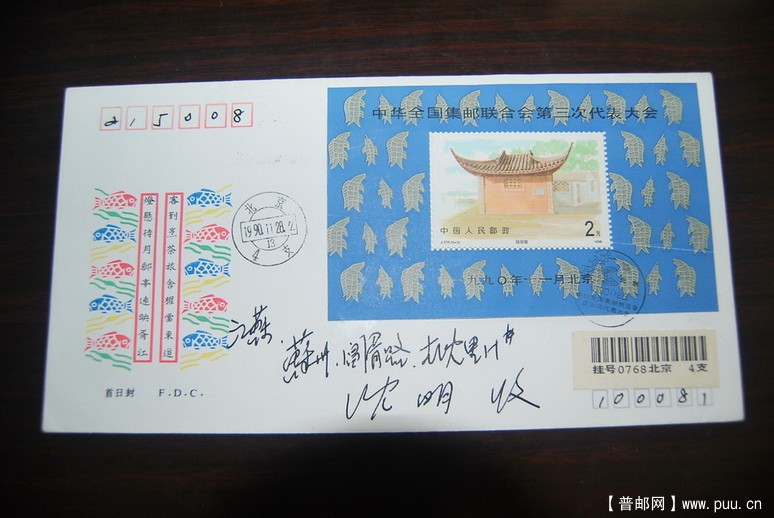 215008
中华全国集邮联合会第三次代表大会
中国人民邮政
2元
一九九〇年·十一月北京
客到烹茶旅舍權當東道
燈懸待月郵亭遠映胥江
北京
1990.11.28.
13
4 支
江苏
苏州
沈明 收
挂号0768北京 4支
100081
首日封 F.D.C.
【普邮网】www.puu.cn